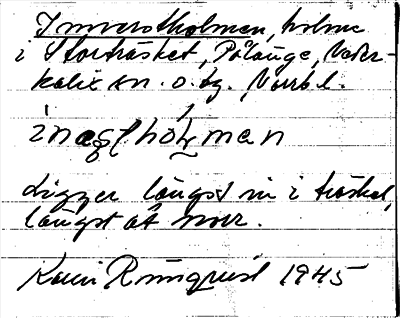 Innerstholmen, holme
i Storträsket, Pålänge, Neder-
kalix sn. o. tg., Norrb. l.
Ligger längst in i träsket,
längst åt norr.
Karin Rönnqvist 1945